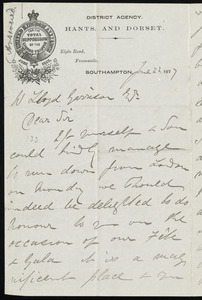 DISTRICT AGENCY.
HANTS. AND DORSET.
TOTAL
SUPPRESSION
Elgin Road,
Freemantle,
SOUTHAMPTON, June 22 1877
W Lloyd Garrison Esq
Dear Sir
If yourself & Son
could kindly manage
to run down from London
on Monday we should
indeed be delighted to do
honour to you on the
occasion of our Fête
& Gala It is a mag-
nificent place &